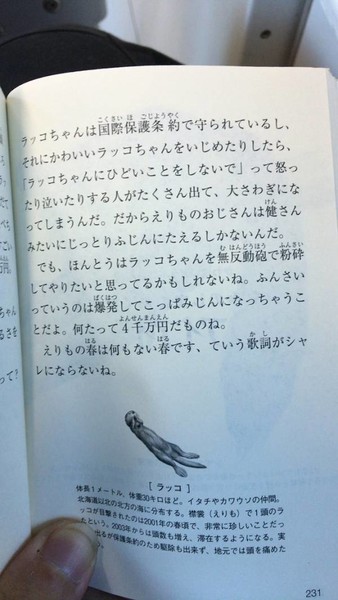 ラッコちゃんは国際保護条約で守られているし、
それにかわいいラッコちゃんをいじめたりしたら、
「ラッコちゃんにひどいことをしないで」って怒っ
たり泣いたりする人がたくさん出て、大さわぎにな
ってしまうんだ。だからえりものおじさんは健さん
みたいにじっとりふじんにたえるしかないんだ。
でも、ほんとうはラッコちゃんを無反動砲で粉砕
してやりたいと思ってるかもしれないね。ふんさい
っていうのは爆発してこっぱみじんになっちゃうこ
とだよ。何たって4千万円だものね。
えりもの春は何もない春です、ていう歌詞がシャ
レにならないね。
[ラッコ]
体長1メートル、体重30キロほど。イタチやカワウソの仲間。
北海道以北の北方の海に分布する。襟裳(えりも)で1頭のラ
ッコが目撃されたのは2001年の春頃で、非常に珍しいことだっ
たという。2003年からは頭数も増え、滞在するようになる。実
出るが保護条約のため駆除も出来ず、地元では頭を痛めた
231